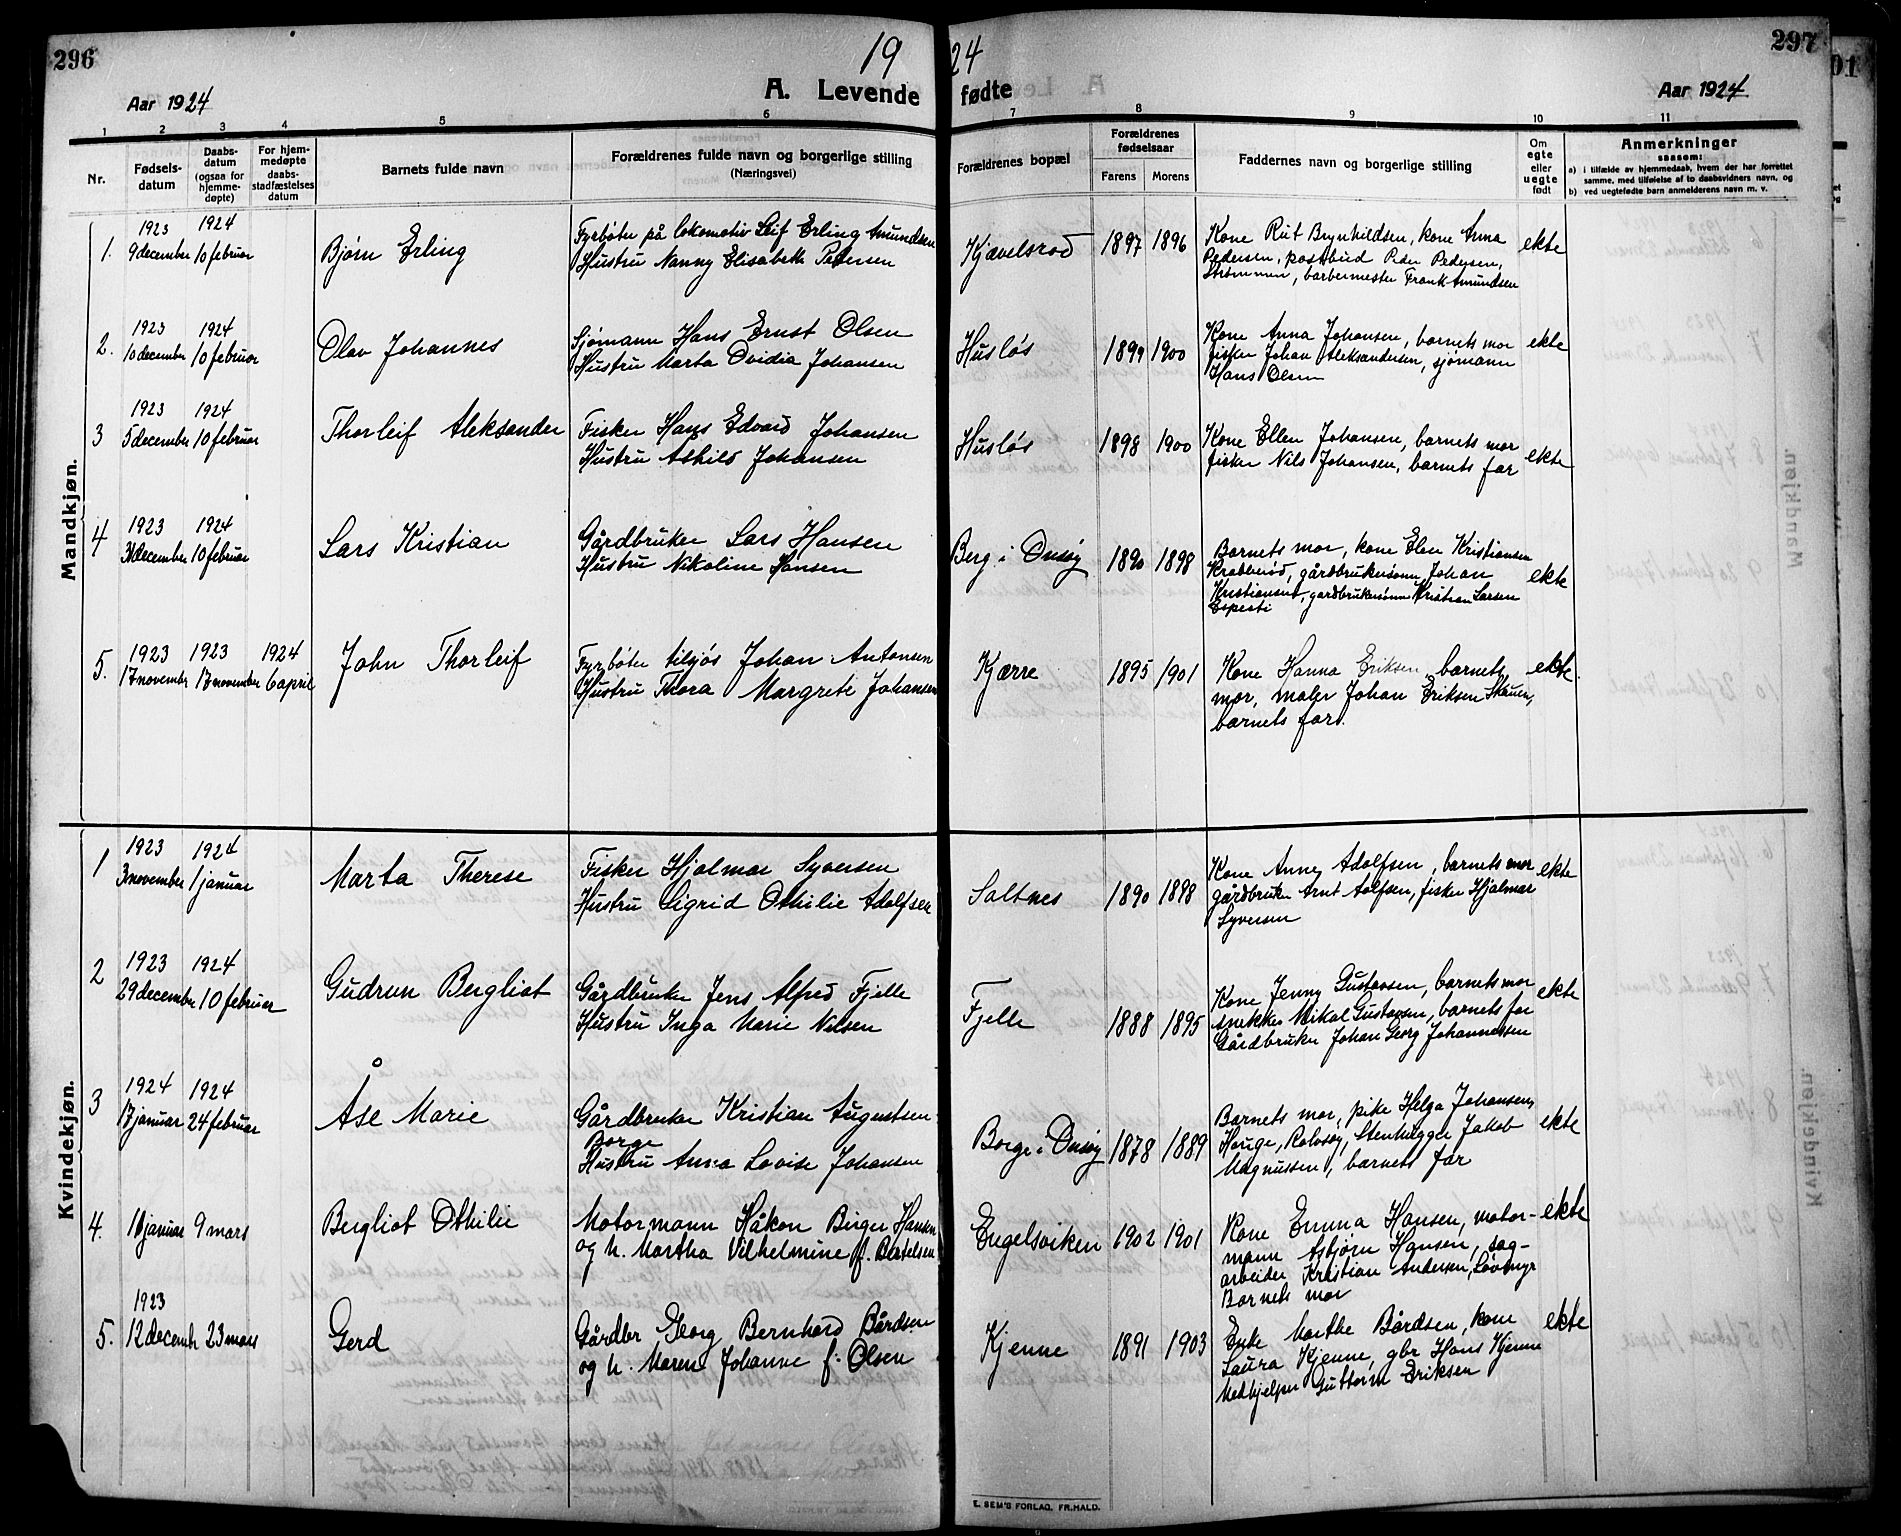 296
1924
297
A. Levende fødte
Aar 1924
Aar 1924
1 2 3 4 5 6 7 8 9 10 11
Nr.
Fødsels-
datum
Daabs-
datum
(ogsaa for
hjemme-
døpte)
For hjem-
medøpte
daabs-
stadfæstelses
datum
Barnets fulde navn
Forældrenes fulde navn og borgerlige stilling
(Næringsvei)
Forældrenes bopæl
Forældrenes
fødselsaar
Farens
Morens
Faddernes navn og borgerlige stilling
Om
egte
eller
uegte
født
Anmerkninger
saasom:
a) i tilfælde av hjemmedaab, hvem der har forrettet
samme, med tilføielse af to daabsvidners navn, og
b) ved uegtefødte barn anmelderens navn m. v.
Mandkjøn.
1. 1923 9 december 1924 10 februar
Bjørn Erling
Fyrbøter på lokomotiv Leif Erling Amundsen
Hustru Nanny Elisabeth Pedersen
Kjævelsrød 1897 1896
Kone Rut Brynhildsen, kone Anna
Pedersen, postbud Peder Pedersen,
Strømmen, barbermester Frank Amundsen
ekte
2. 1923 10 december 1924 10 februar
Olav Johannes
Sjømann Hans Ernst Olsen
Hustru Marta Ovidia Johansen
Husløs 1899 1900
Kone Anna Johansen, barnets mor
fisker Johan Aleksandersen, sjømann
Hans Olsen
ekte
3 1923 5 december 1924 10 februar
Thorleif Aleksander
Fisker Hans Edvard Johansen
Hustru Johansen
Husløs 1898 1900
Kone Ellen Johansen, barnets mor
fisker Nils Johansen, barnets far
ekte
4 1923 31 december 1924 10 februar
Lars Kristian
Gårdbruker Lars Hansen
Hustru Nikoline Hansen
Berg i Onsøy 1890 1898
Barnets mor, kone Elen Kristiansen
Krabberød, gårdbrukersønn Johan
Kristiansen, gardbrukersønn Kristian Larsen
ekte
5. 1923 17 november 1923 17 november 1924 6 april
John Thorleif
Fyrbøter tilsjøs Johan Antonsen
Hustru Thora Margrete Johansen
Kjærre 1895 1901
Kone Hanna Eriksen, barnets
mor, maler Johan Eriksen
barnets far.
ekte
Kvindekjøn.
1 1923 3 november 1924 1 januar
Marta Therese
Fisker Hjalmar Syversen
Hustru Sigrid Othilie Adolfsen
Saltnes 1890 1888
Kone Anny Adolfsen, barnets mor
gårdbruker Arnt Aolfsen, fisker Hjalmar
Syversen
ekte
2 1923 29 december 1924 10 februar
Gudrun Bergliot
Gårdbruker Jens Alfred Fjelle
Hustru Inga Marie Nilsen
Fjelle 1888 1895
Kone Jenny Gustavsen, barnets mor
snekker Mikal Gustavsen, barnets far
Gårdbruker Johan Georg Johannessen
ekte
3 1924 17 januar 1924 24 februar
Åse Marie
Gårdbruker Kristian Augustsen
Borge
Hustru Anna Lovise Johansen
Borge i Onsøy 1878 1889
Barnets mor, pike Helga Johansen,
Hauge, Rolvsøy, Stenhugger Jakob
Magnussen, barnets far
ekte
4. januar 9 mars
Bergliot Othilie
Motormann Håkon Birger Hansen
og h. Martha Vilhelmine f. Bertelsen
Engelsviken 1902 1901
Kone Emma Hansen, motor-
mann Asbjørn Hansen, sag-
arbeider Kristian Andersen,
Barnets mor
ekte
5. 1923 12 decembr 23 mars
Gerd
Gårdbr Georg Bernhard Bårdsen
og h. Maren Johanne f. Olsen
Kjenne 1891 1903
Enke Marthe Bårdsen, kone
Laura Kjenne, gbr Hans Kjenne
Medhjelper Guttorm Eriksen
ekte
E. SEM'S FORLAG, FR.HALD.